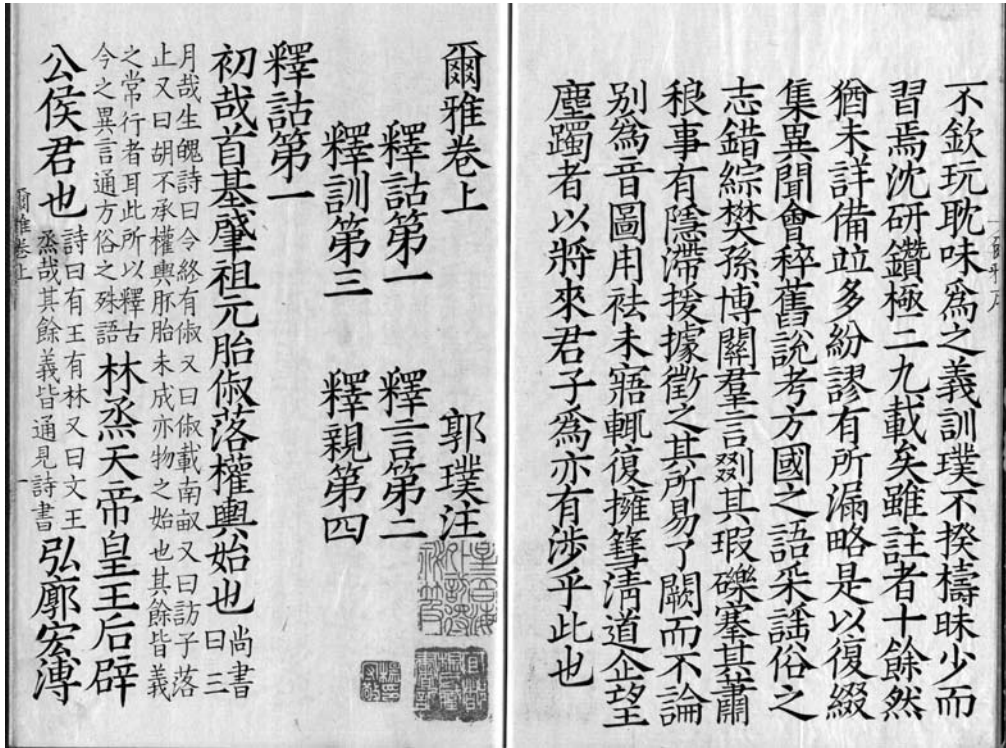 不欽玩耽味為之義訓璞不揆檮昧少而
習焉沈研鑽極二九載矣雖註者十餘然
猶未詳備竝多紛謬有所漏略是以復綴
集異聞會稡舊說考方國之語采謠俗之
志錯綜樊孫博關羣言剟其瑕礫搴其蕭
稂事有隱滯援據徵之其所易了闕而不論
別為音圖用祛未寤輒復擁篲清道企望
塵躅者以將來君子為亦有涉乎此也
爾雅卷上 郭璞注
釋詁第一 釋言第二
釋訓第三 釋親第四
釋詁第一
初哉首基肇祖元胎俶落權輿始也
尚書
曰三
月哉生魄詩曰令終有俶又曰俶載南畝又曰訪予落
止又曰胡不承權輿胚胎未成亦物之始也其餘皆義
之常行者耳此所以釋古
今之異言通方俗之殊語
林烝天帝皇王后辟
公侯君也
詩曰有王有林又曰文王
烝哉其餘義皆通見詩書
弘廓宏溥
爾雅卷上 一